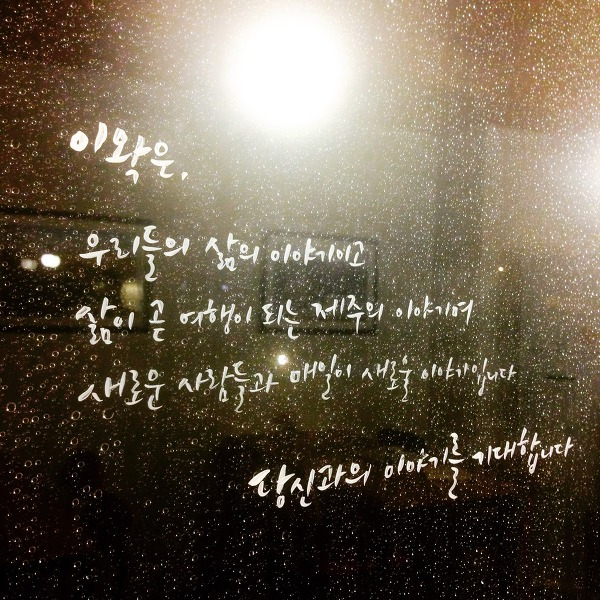 이왁은,
우리들의 삶의 이야기이고
삶이 곧 여행이 되는 제주의 이야기며
새로운 사람들과 매일이 새로울 이야기입니다
당신과의 이야기를 기대합니다